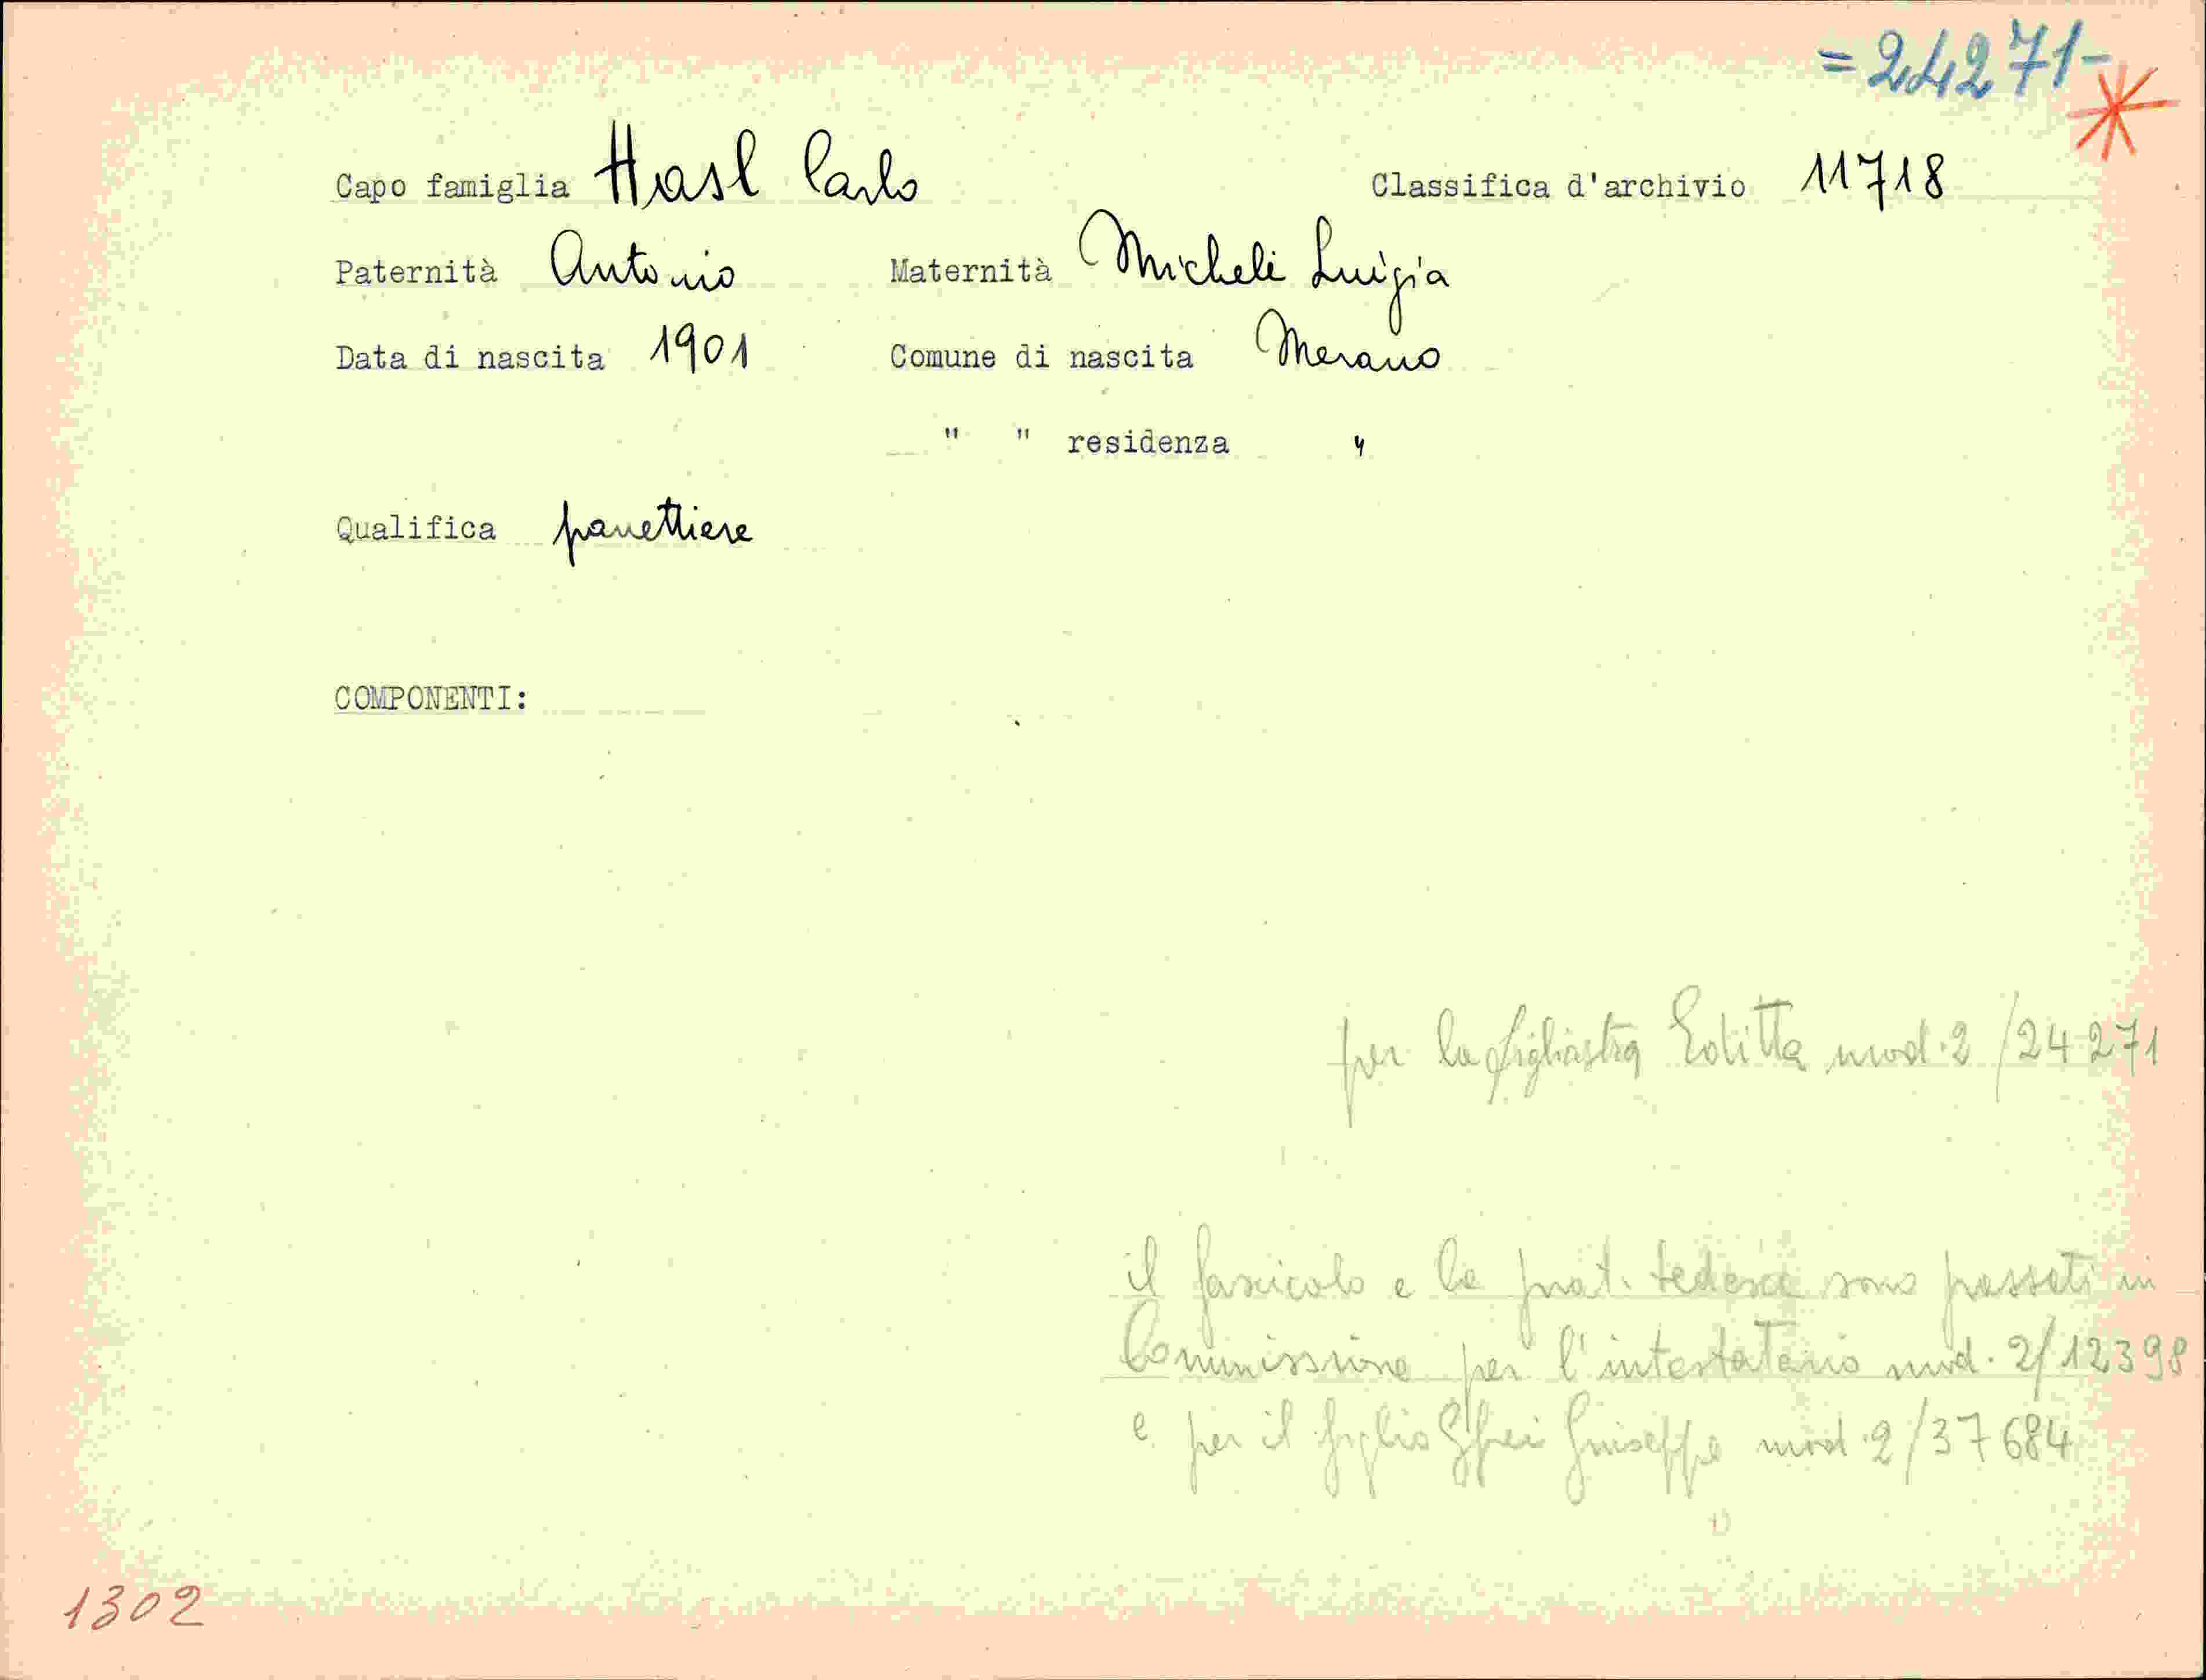 =24271-
Capo famiglia Hasl Carlo Classifica d'archivio 11718
Paternità Antonio Maternità Micheli Luigia
Data di nascita 1901 Comune di nascita Merano
" " residenza "
Qualifica panettiere
COMPONENTI:
per la figliastra Editta mod. 2 /24271
il fascicolo e la prat. tedesca sono passati in
Commissione per l'intestatario mod. 2/12398
e per il figlio Giuseppe mod. 2/37684
1302